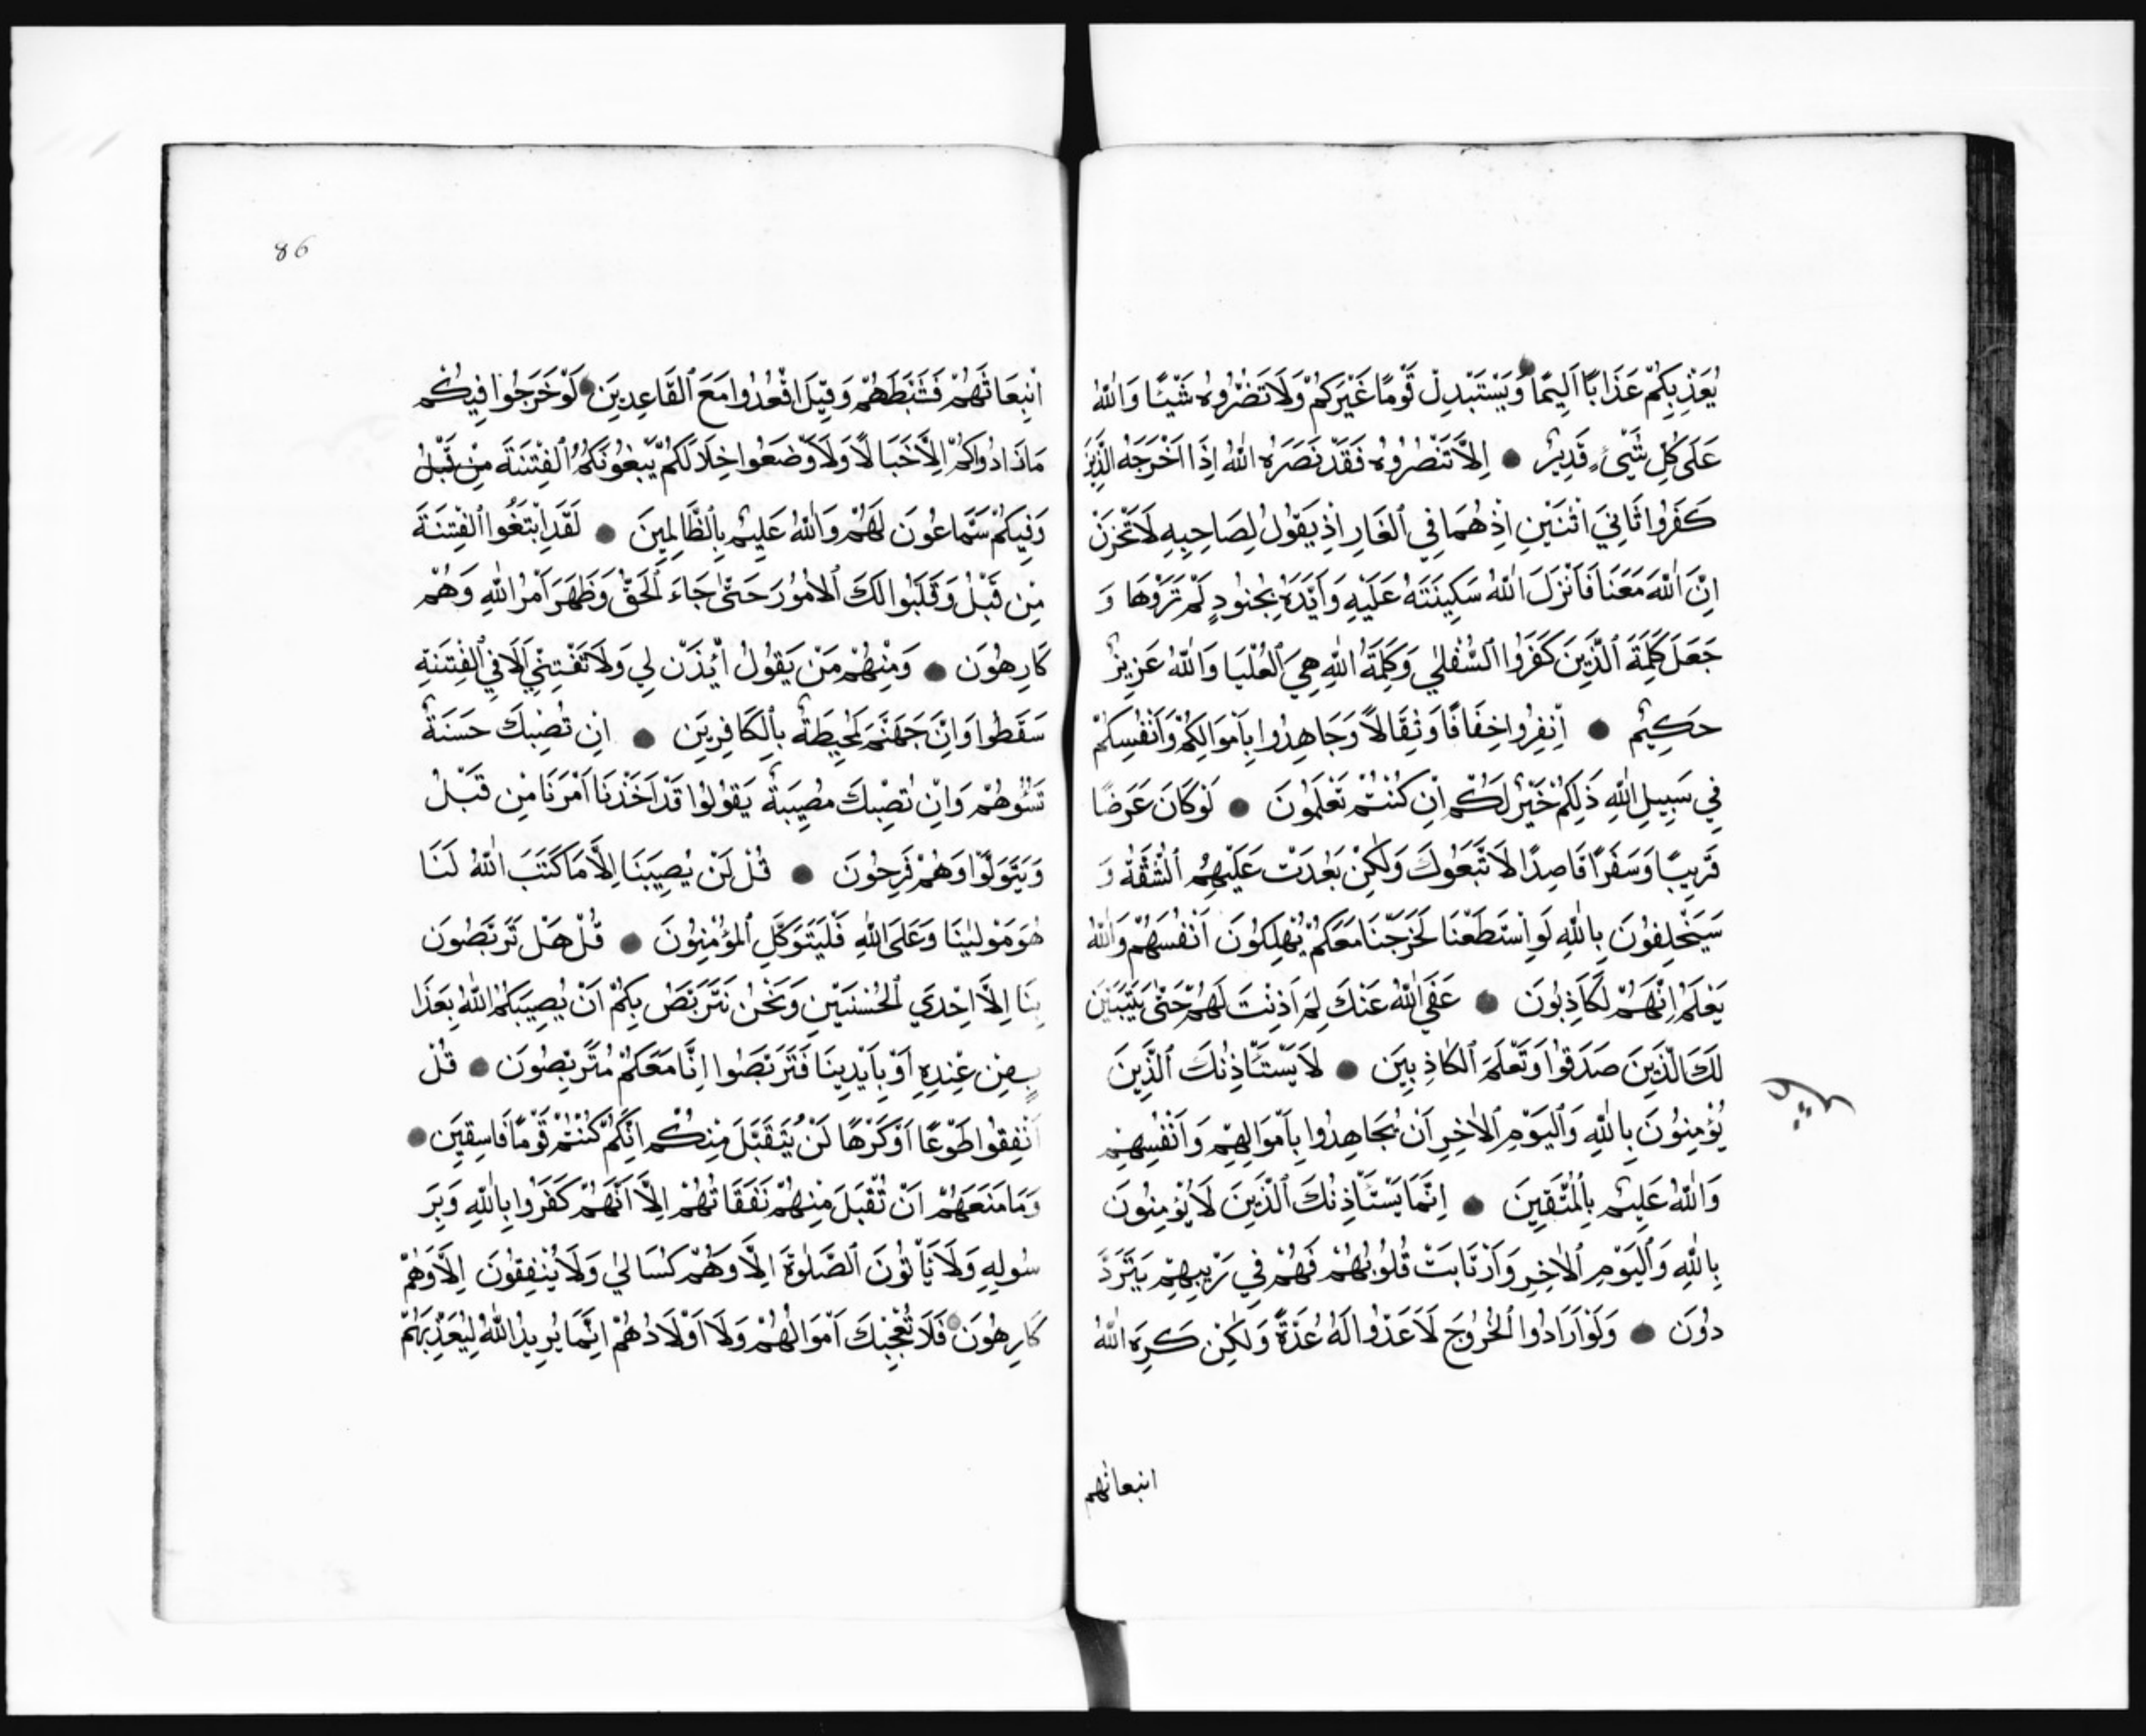 يُعَذِّبْكُمْ عَذَابًا اَلِيمًا وَيَسْتَبْدِلْ قَوْمًا غَيْرَكُمْ وَلَا تَضُرُّوهُ شَيْئًا وَاللّٰهُ
عَلَى كُلِّ شَيْءٍ قَدِيرٌ اِلَّا تَنْصُرُوهُ فَقَدْ نَصَرَهُ اللّٰهُ اِذَا اَخْرَجَهُ الَّذِينَ
كَفَرُوا ثَانِيَ اثْنَيْنِ اِذْ هُمَا فِي الْغَارِ اِذْ يَقُولُ لِصَاحِبِهِ لَا تَحْزَنْ
اِنَّ اللّٰهَ مَعَنَا فَاَنْزَلَ اللّٰهُ سَكِينَتَهُ عَلَيْهِ وَاَيَّدَهُ بِجُنُودٍ لَمْ تَرَوْهَا وَ
جَعَلَ كَلِمَةَ الَّذِينَ كَفَرُوا السُّفْلٰي وَكَلِمَةُ اللّٰهِ هِيَ الْعُلْيَا وَاللّٰهُ عَزِيزٌ
حَكِيمٌ اِنْفِرُوا خِفَافًا وَثِقَالًا وَجَاهِدُوا بِاَمْوَالِكُمْ وَاَنْفُسِكُمْ
فِي سَبِيلِ اللّٰهِ ذَلِكُمْ خَيْرٌ لَكُمْ اِنْ كُنْتُمْ تَعْلَمُونَ لَوْ كَانَ عَرَضًا
قَرِيبًا وَسَفَرًا قَاصِدًا لَاتَّبَعُوكَ وَلٰكِنْ بَعُدَتْ عَلَيْهِمُ الشُّقَّةُ وَ
سَيَحْلِفُونَ بِاللّٰهِ لَوِ اسْتَطَعْنَا لَخَرَجْنَا مَعَكُمْ يُهْلِكُونَ اَنْفُسَهُمْ وَاللّٰهُ
يَعْلَمُ اِنَّهُمْ لَكَاذِبُونَ عَفَي اللّٰهُ عَنْكَ لِمَ اَذِنْتَ لَهُمْ حَتّٰى يَتَبَيَّنَ
لَكَ الَّذِينَ صَدَقُوا وَتَعْلَمَ الْكَاذِبِينَ لَا يَسْتَأْذِنُكَ الَّذِينَ
يُؤْمِنُونَ بِاللّٰهِ وَالْيَوْمِ الْاٰخِرِ اَنْ يُجَاهِدُوا بِاَمْوَالِهِمْ وَاَنْفُسِهِمْ
وَاللّٰهُ عَلِيمٌ بِالْمُتَّقِينَ اِنَّمَا يَسْتَأْذِنُكَ الَّذِينَ لَا يُؤْمِنُونَ
بِاللّٰهِ وَالْيَوْمِ الْاٰخِرِ وَارْتَابَتْ قُلُوبُهُمْ فَهُمْ فِي رَيْبِهِمْ يَتَرَدَّ
دُونَ وَلَوْ اَرَادُوا الْخُرُوجَ لَاَعَدُّوا لَهُ عُدَّةً وَلٰكِنْ كَرِهَ اللّٰهُ
انبعاثهم
86
انْبِعَاثَهُمْ فَثَبَّطَهُمْ وَقِيلَ اقْعُدُوا مَعَ الْقَاعِدِينَ لَوْ خَرَجُوا فِيكُمْ
مَا زَادُوكُمْ اِلَّا خَبَالًا وَلَاَوْضَعُوا خِلَالَكُمْ يَبْغُونَكُمُ الْفِتْنَةَ مِنْ قَبْلُ
وَفِيكُمْ سَمَّاعُونَ لَهُمْ وَاللّٰهُ عَلِيمٌ بِالظَّالِمِينَ لَقَدِ ابْتَغَوُا الْفِتْنَةَ
مِنْ قَبْلُ وَقَلَّبُوا لَكَ الْاُمُورَ حَتّٰى جَاءَ الْحَقُّ وَظَهَرَ اَمْرُ اللّٰهِ وَهُمْ
كَارِهُونَ وَمِنْهُمْ مَنْ يَقُولُ ائْذَنْ لِي وَلَا تَفْتِنِّي اَلَا فِي الْفِتْنَةِ
سَقَطُوا وَاِنَّ جَهَنَّمَ لَمُحِيطَةٌ بِالْكَافِرِينَ اِنْ تُصِبْكَ حَسَنَةٌ
تَسُؤْهُمْ وَاِنْ تُصِبْكَ مُصِيبَةٌ يَقُولُوا قَدْ اَخَذْنَا اَمْرَنَا مِنْ قَبْلُ
وَيَتَوَلَّوْا وَهُمْ فَرِحُونَ قُلْ لَنْ يُصِيبَنَا اِلَّا مَا كَتَبَ اللّٰهُ لَنَا
هُوَ مَوْلٰينَا وَعَلَى اللّٰهِ فَلْيَتَوَكَّلِ الْمُؤْمِنُونَ قُلْ هَلْ تَرَبَّصُونَ
بِنَا اِلَّا اِحْدَي الْحُسْنَيَيْنِ وَنَحْنُ نَتَرَبَّصُ بِكُمْ اَنْ يُصِيبَكُمُ اللّٰهُ بِعَذَا
بٍ مِنْ عِنْدِهِ اَوْ بِاَيْدِينَا فَتَرَبَّصُوا اِنَّا مَعَكُمْ مُتَرَبِّصُونَ قُلْ
اَنْفِقُوا طَوْعًا اَوْ كَرْهًا لَنْ يُتَقَبَّلَ مِنْكُمْ اِنَّكُمْ كُنْتُمْ قَوْمًا فَاسِقِينَ
وَمَا مَنَعَهُمْ اَنْ تُقْبَلَ مِنْهُمْ نَفَقَاتُهُمْ اِلَّا اَنَّهُمْ كَفَرُوا بِاللّٰهِ وَبِرَ
سُولِهِ وَلَا يَأْتُونَ الصَّلٰوةَ اِلَّا وَهُمْ كُسَالٰي وَلَا يُنْفِقُونَ اِلَّا وَهُمْ
كَارِهُونَ فَلَا تُعْجِبْكَ اَمْوَالُهُمْ وَلَا اَوْلَادُهُمْ اِنَّمَا يُرِيدُ اللّٰهُ لِيُعَذِّبَهُمْ